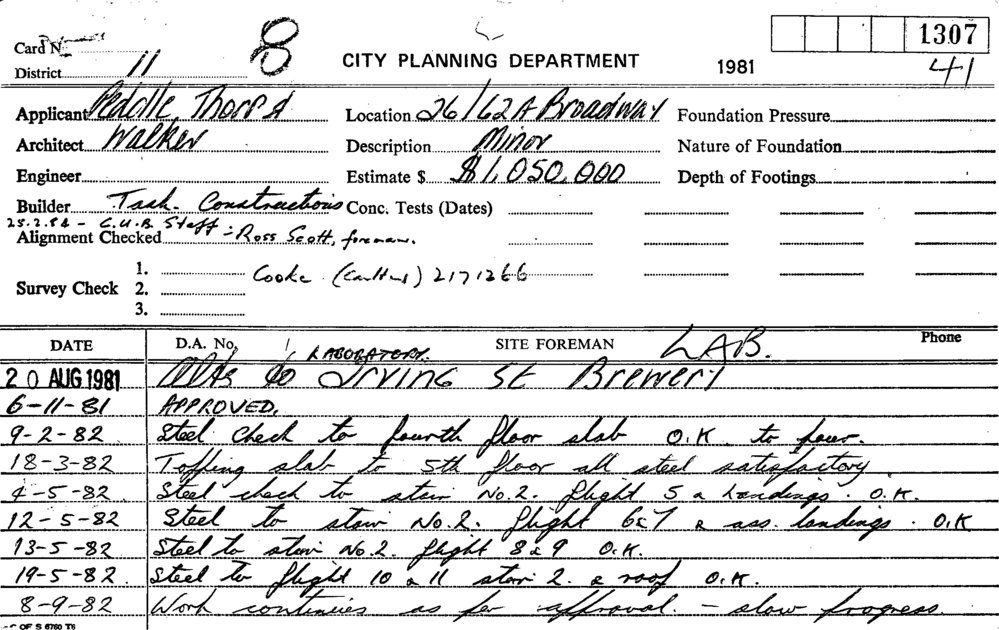 Card No. 8 1307
District 11 CITY PLANNING DEPARTMENT 1981 41
Applicant Peddle, Thorp & Location 26/62A Broadway Foundation Pressure
Architect Walker Description Minor Nature of Foundation
Engineer Estimate $ $1,050,000 Depth of Footings
Builder Task. Constructions Conc. Tests (Dates)
25.2.82 - C.U.B. Staff :- Ross Scott, foreman.
Alignment Checked
1. Cooke (Carltons) 2171266
Survey Check 2.
3.
DATE D.A. No. LABORATORY. SITE FOREMAN LAB. Phone
20 AUG 1981 Alts to Irving St Brewery
6-11-81 APPROVED.
9-2-82 Steel check to fourth floor slab O.K. to pour.
18-3-82 Topping slab to 5th floor all steel satisfactory
4-5-82 Steel check to stair No.2. flight 5 & landings. O.K.
12-5-82 Steel to stair No.2. flight 6&7 & ass. landings. O.K
13-5-82 Steel to stair No.2. flight 8&9 O.K.
19-5-82 Steel to flight 10 & 11 stair 2. & roof O.K.
8-9-82 Work continues as per approval. - slow progress.
OF S 6760 T6